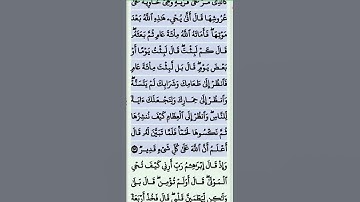 كَٱلَّذِى مَرَّ عَلَىٰ قَرْيَةٍ وَهِىَ خَاوِيَةٌ عَلَىٰ
عُرُوشِهَا قَالَ أَنَّىٰ يُحْىِۦ هَٰذِهِ ٱللَّهُ بَعْدَ
مَوْتِهَا ۖ فَأَمَاتَهُ ٱللَّهُ مِا۟ئَةَ عَامٍ ثُمَّ بَعَثَهُۥ ۖ
قَالَ كَمْ لَبِثْتَ ۖ قَالَ لَبِثْتُ يَوْمًا أَوْ
بَعْضَ يَوْمٍ ۖ قَالَ بَل لَّبِثْتَ مِا۟ئَةَ عَامٍ
فَٱنظُرْ إِلَىٰ طَعَامِكَ وَشَرَابِكَ لَمْ يَتَسَنَّهْ ۖ
وَٱنظُرْ إِلَىٰ حِمَارِكَ وَلِنَجْعَلَكَ ءَايَةً
لِّلنَّاسِ ۖ وَٱنظُرْ إِلَى ٱلْعِظَامِ كَيْفَ نُنشِزُهَا
ثُمَّ نَكْسُوهَا لَحْمًا ۚ فَلَمَّا تَبَيَّنَ لَهُۥ قَالَ
أَعْلَمُ أَنَّ ٱللَّهَ عَلَىٰ كُلِّ شَىْءٍ قَدِيرٌ ٢٥٩
وَإِذْ قَالَ إِبْرَٰهِـۧمُ رَبِّ أَرِنِى كَيْفَ تُحْىِ
ٱلْمَوْتَىٰ ۖ قَالَ أَوَلَمْ تُؤْمِن ۖ قَالَ بَلَىٰ
وَلَٰكِن لِّيَطْمَئِنَّ قَلْبِى ۖ قَالَ فَخُذْ أَرْبَعَةً